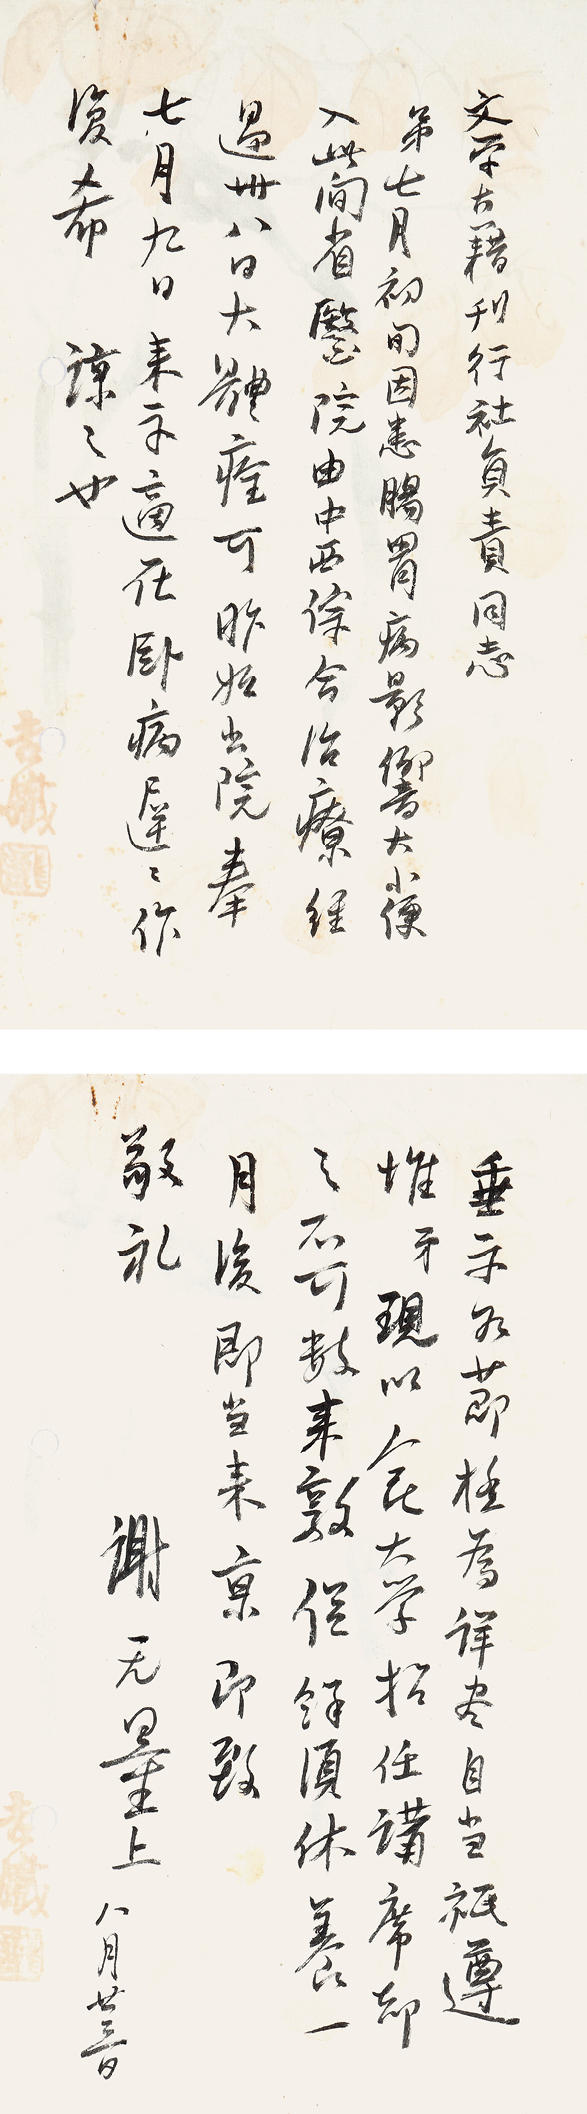 文学古籍刊行社负責同志
弟七月初旬因患腸胃病影響大小便
入此间省醫院由中西综合治療経
過卅八日大體痊可昨始出院奉
七月九日来示適在卧病遲〻作
復希 諒之也
垂示各節極为詳尽自当祗遵
惟弟現以人民大学招任講席却
之不可数来敦促銷須休養一
月後即当来京即致
敬礼
謝无量上 八月廿三日